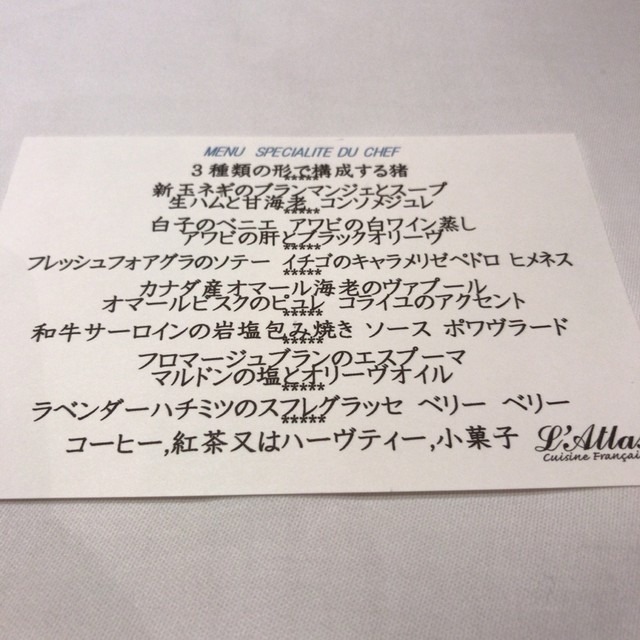 MENU SPECIALITE DU CHEF
3種類の形で構成する猪
*****
新玉ネギのブランマンジェとスープ
生ハムと甘海老 コンソメジュレ
*****
白子のベニエ アワビの白ワイン蒸し
アワビの肝とブラックオリーヴ
*****
フレッシュフォアグラのソテー イチゴのキャラメリゼペドロ ヒメネス
*****
カナダ産オマール海老のヴァプール
オマールビスクのピュレ コライユのアクセント
*****
和牛サーロインの岩塩包み焼き ソース ポワヴラード
*****
フロマージュブランのエスプーマ
マルドンの塩とオリーヴオイル
*****
ラベンダーハチミツのスフレグラッセ ベリー ベリー
*****
コーヒー,紅茶又はハーヴティー,小菓子
L'Atlas
Cuisine Françai